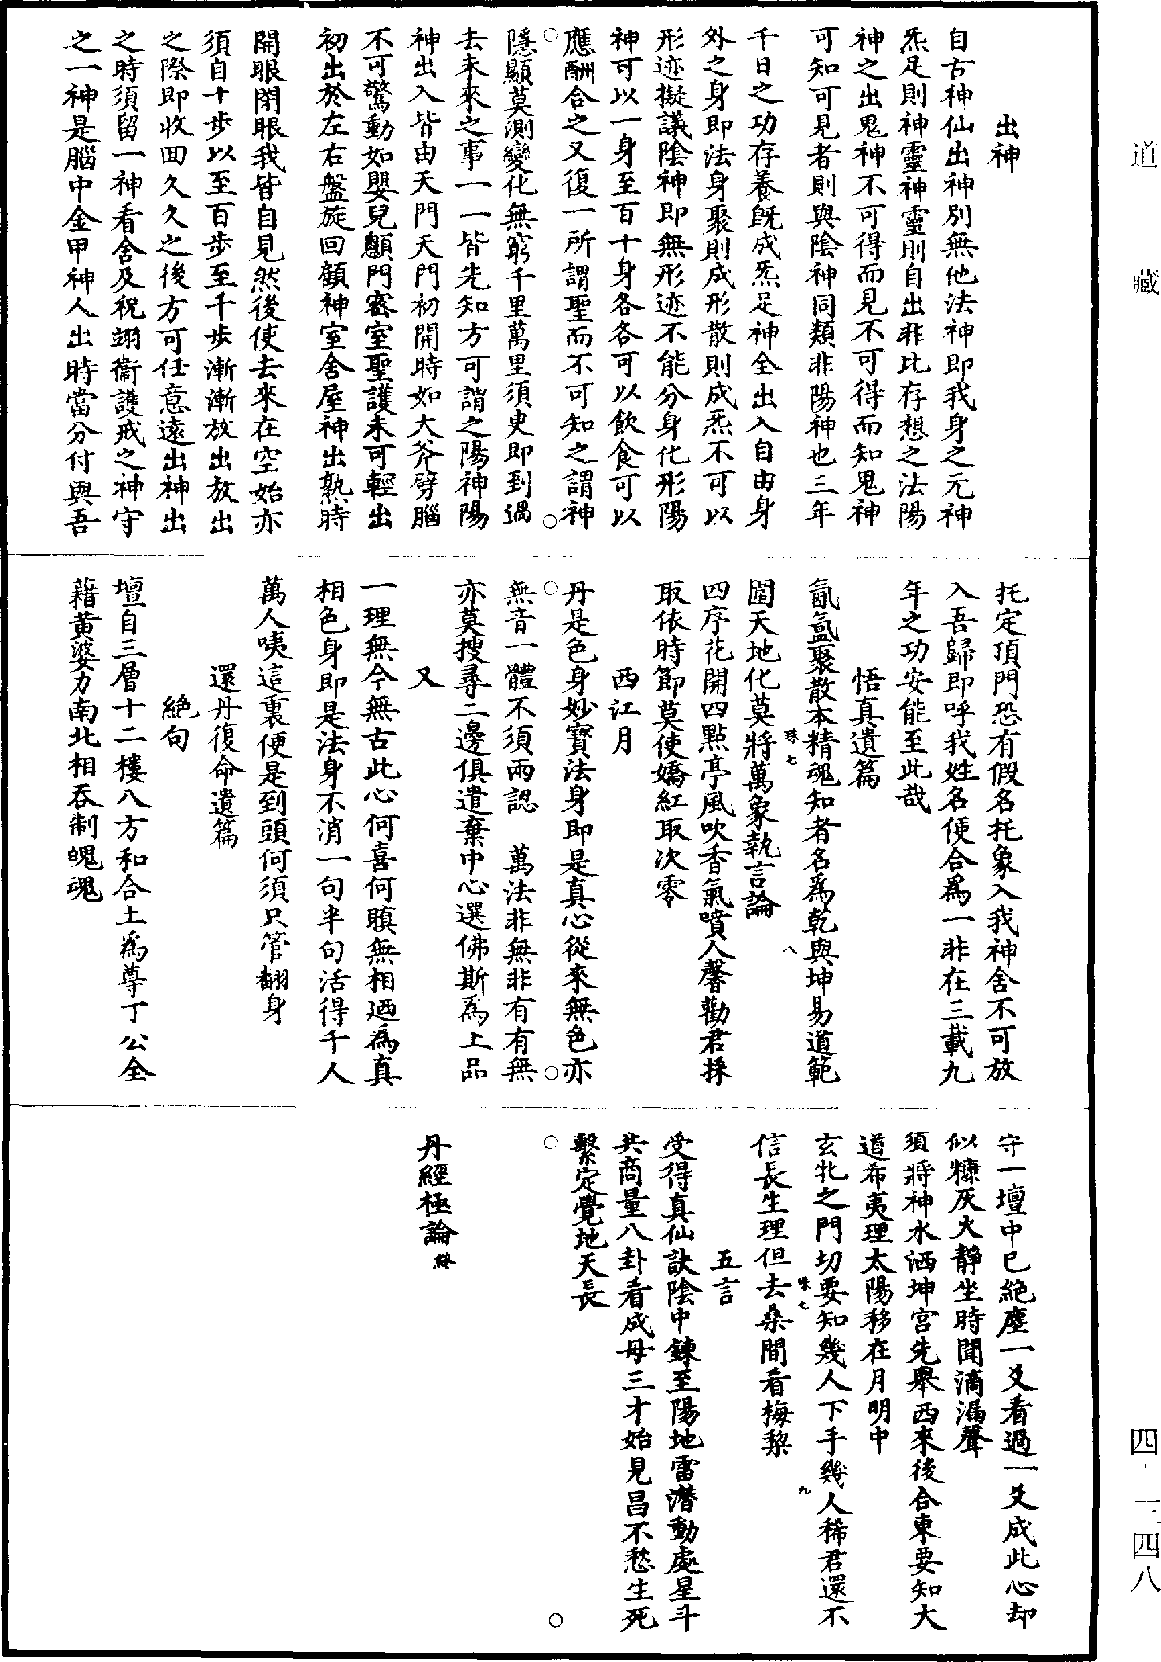 道　藏
四－三四八
出神
自古神仙出神別無他法神即我身之元神
炁足則神靈神靈則自出非比存想之法陽
神之出鬼神不可得而見不可得而知鬼神
可知可見者則與陰神同類非陽神也三年
千日之功存養既成炁足神全出入自由身
外之身即法身聚則成形散則成炁不可以
形迹擬議陰神即無形迹不能分身化形陽
神可以一身至百十身各各可以飲食可以
應酬合之又復一所謂聖而不可知之謂神
隱顯莫測變化無窮千里萬里須臾即到過
去未來之事一一皆先知方可謂之陽神陽
神出入皆由天門天門初開時如大斧劈腦
不可驚動如嬰兒顖門密室聖護未可輕出
初出於左右盤旋回顧神室舍屋神出熟時
開眼閉眼我皆自見然後使去來在空始亦
須自十步以至百步至千步漸漸放出放出
之際即收回久久之後方可任意遠出神出
之時須留一神看舍及祝翊衞護戒之神守
之一神是腦中金甲神人出時當分付與吾
托定頂門恐有假名托象入我神舍不可放
入吾歸即呼我姓名便合爲一非在三載九
年之功安能至此哉
悟真遺篇
氤氳聚散本精魂知者名爲乾與坤易道範
圍天地化莫將萬象執言論
四序花開四點亭風吹香氣噴人馨勸君採
取依時節莫使嬌紅取次零
西江月
丹是色身妙寶法身即是真心從來無色亦
無音一體不須兩認　萬法非無非有有無
亦莫搜尋二邊俱遣棄中心選佛斯爲上品
又
一理無今無古此心何喜何瞋無相迺爲真
相色身即是法身不消一句半句活得千人
萬人咦這裏便是到頭何須只管翻身
還丹復命遺篇
絕句
壇自三層十二樓八方和合土爲尊丁公全
藉黃婆力南北相吞制魄魂
守一壇中已絕塵一爻看過一爻成此心却
似糠灰火靜坐時聞滴漏聲
須將神水洒坤宮先舉西來後合東要知大
道希夷理太陽移在月明中
玄牝之門切要知幾人下手幾人稀君還不
信長生理但去桑間看梅棃
五言
受得真仙訣陰中鍊至陽地雷潛動處星斗
共商量八卦看成母三才始見昌不愁生死
繫定覺地天長
丹經極論終